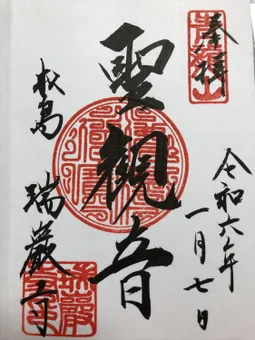 奉拝
令和六年
一月七日
聖観音
松島 瑞巌寺